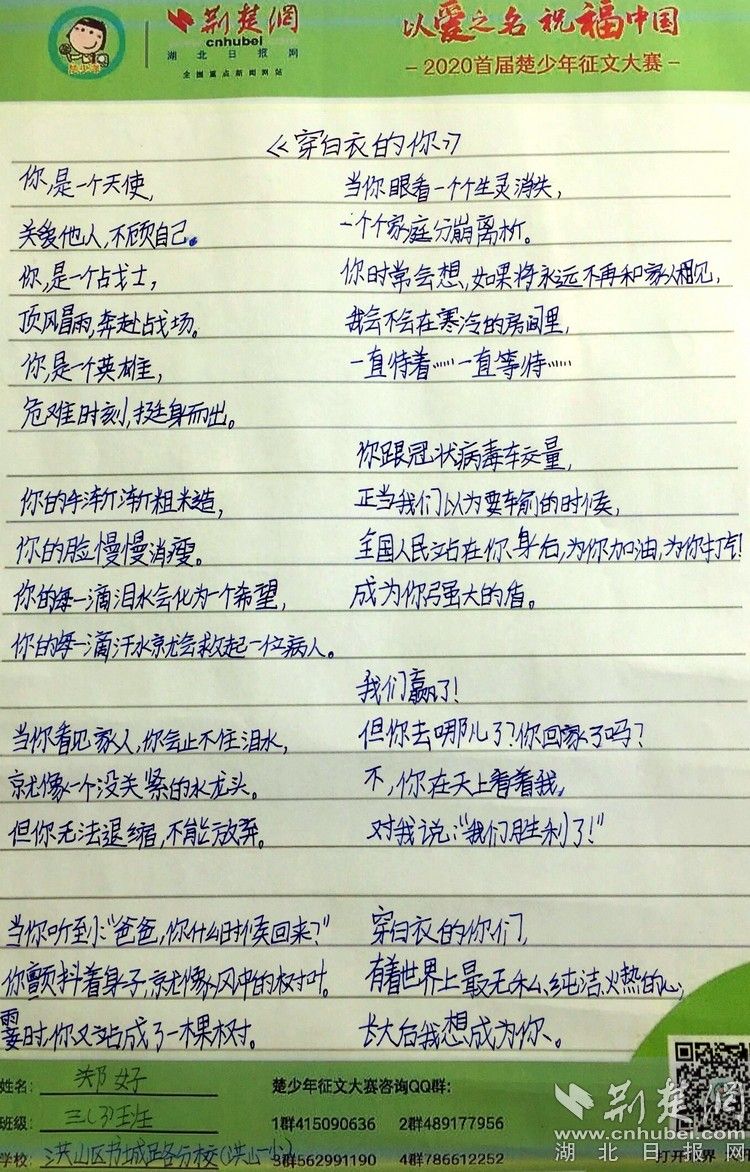 荆楚网
cnhubei
湖北日报网
全国重点新闻网站
楚少年
以爱之名 祝福中国
-2020首届楚少年征文大赛-
《穿白衣的你》
你,是一个天使,
关爱他人,不顾自己。
你,是一个战士,
顶风冒雨,奔赴战场。
你,是一个英雄,
危难时刻,挺身而出。
你的手渐渐粗糙,
你的脸慢慢消瘦。
你的每一滴泪水会化为一个希望,
你的每一滴汗水就会救起一位病人。
当你看见家人,你会止不住泪水,
就像一个没关紧的水龙头。
但你无法退缩,不能放弃。
当你听到:“爸爸,你什么时候回来?”
你颤抖着身子,就像风中的树叶。
霎时,你又站成了一棵树。
当你眼看一个个生灵消失,
一个个家庭分崩离析。
你时常会想,如果将永远不再和家人相见,
我会不会在寒冷的房间里,
一直待着……一直等待……
你跟冠状病毒车交量,
正当我们以为要输的时候,
全国人民站在你身后,为你加油,为你打气!
成为你强大的盾。
我们赢了!
但你去哪儿了?你回家了吗?
不,你在天上看着我,
对我说:“我们胜利了!”
穿白衣的你们,
有着世界上最无私、纯洁、火热的心,
长大后我想成为你、。
姓名: 郑好
班级: 三(3)班
学校: 洪山区书城路分校(洪山一小)
楚少年征文大赛咨询QQ群:
1群415090636 2群489177956
3群562991190 4群786612252
打开 界
荆楚网
www.cnhubei.com
湖北日报网